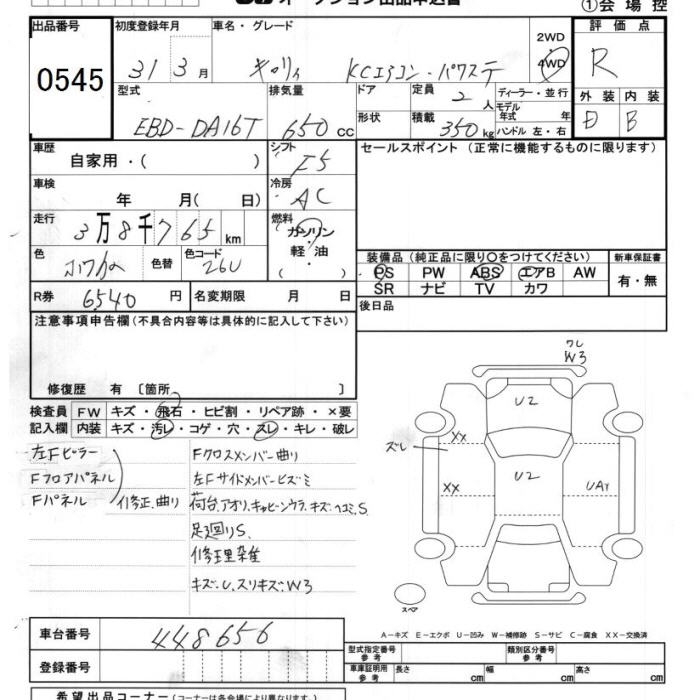 ①会場控
出品番号 初度登録年月 車名・グレード 評価点
0545 31 3月 キャリィ KCエアコン・パワステ 2WD 4WD R
型式 排気量 ドア 定員 2人 ディーラー・並行 外装 内装
EBD-DA16T 650cc 形状 積載 350kg モデル年式 年 ハンドル 左・右 D B
車歴 シフト セールスポイント(正常に機能するものに限ります)
自家用・( ) F5
車検 冷房
年 月( 日) AC
走行 燃料
3万8千765km ガソリン
軽・油
・( )
色 色替 色コード 装備品(純正品に限り○をつけてください) 新車保証書
26U PS PW ABS エアB AW 有・無
SR ナビ TV カワ
R券 6540円 名変期限 月 日 後日品
注意事項申告欄(不具合内容等は具体的に記入して下さい)
ワレ
W3
修復歴 有 〔箇所 〕
U2
検査員 FW キズ・飛石・ヒビ割・リペア跡・×要
記入欄 内装 キズ・汚レ・コゲ・穴・スレ・キレ・破レ
ズレ XX
左Fピラー Fクロスメンバー曲り
Fフロアパネル 左Fサイドメンバーヒズミ
U2 UAY
XX
Fパネル 修正.曲り 荷台.アオリ.キャビンウラ.キズ.ヘコミ.S
足廻りS
修理雑
キズ.U.スリキズ.W3
スペア
車台番号 448656
A-キズ E-エクボ U-凹み W-補修跡 S-サビ C-腐食 XX-交換済
型式指定番号 参考 類別区分番号 参考
登録番号 車庫証明用 参考 長さ cm 幅 cm 高さ cm
希望出品コーナー(コーナーは各会場により異なります。)